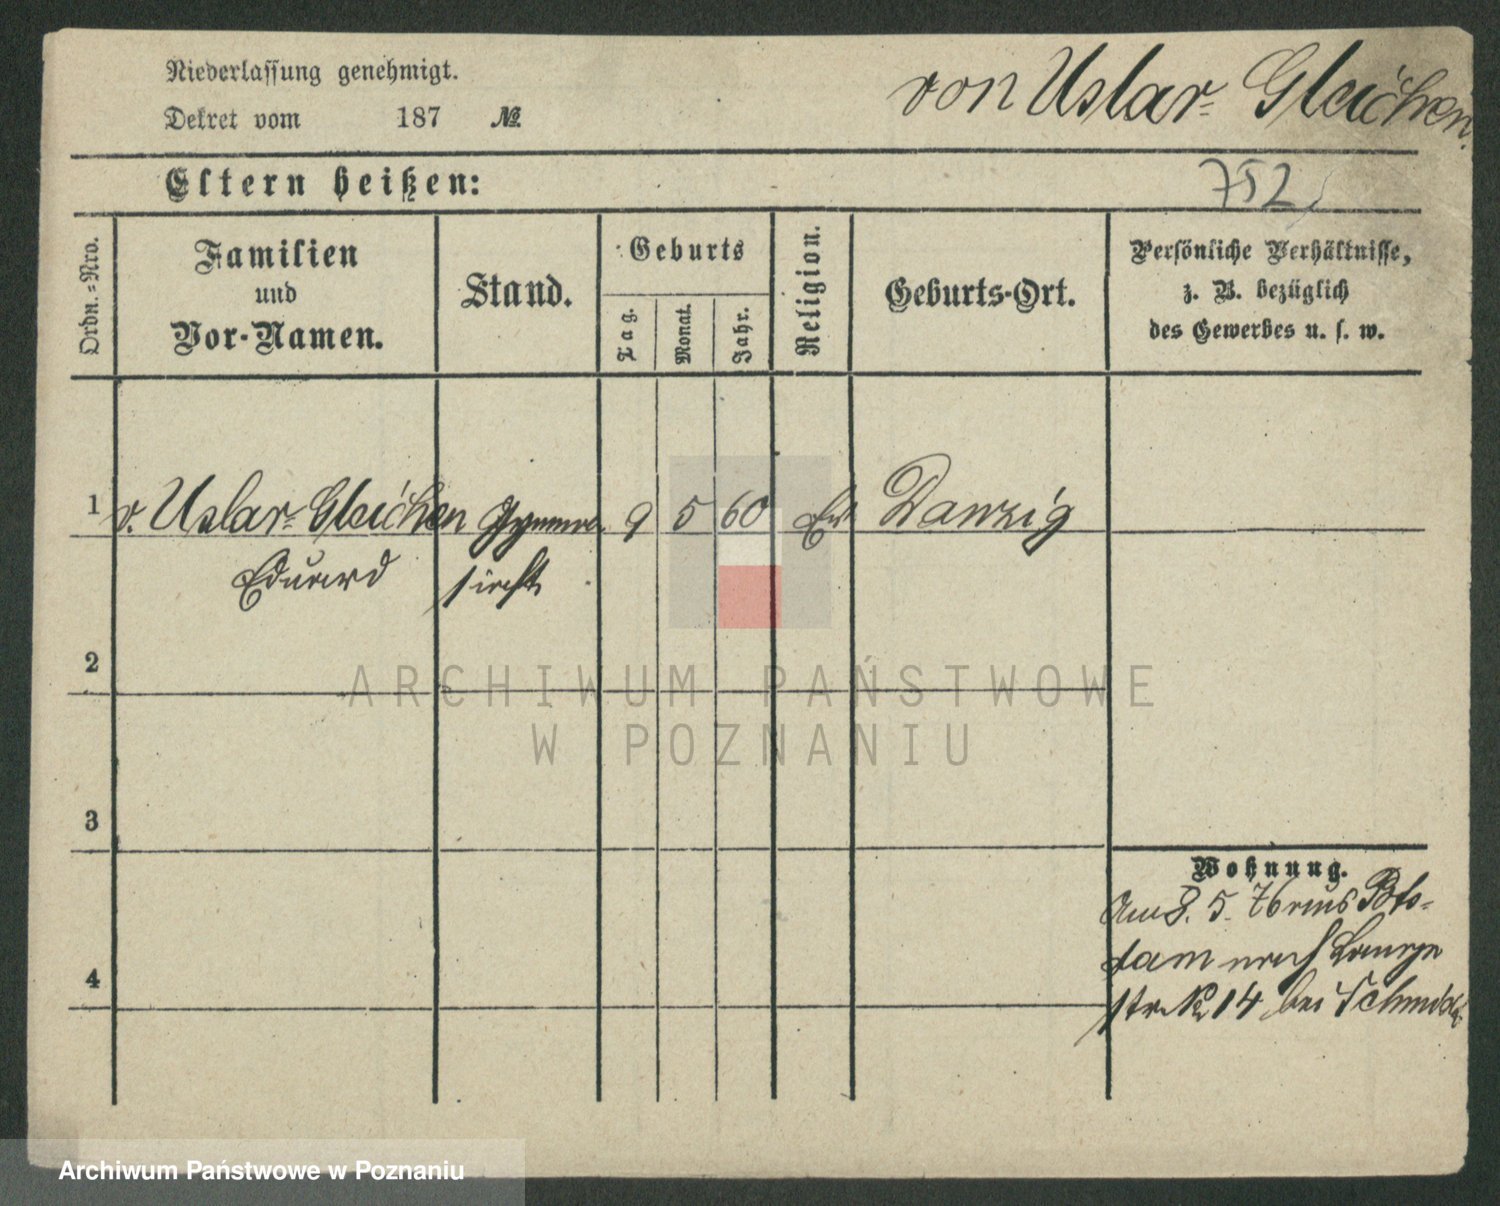 Niederlassung genehmigt.
Dekret vom 187 №
von Uslar-Gleichen.
752
Eltern heißen:
Ordn.-Nro.
Familien
und
Vor-Namen.
Stand.
Geburts
Tag.
Monat.
Jahr.
Religion.
Geburts-Ort.
Persönliche Verhältnisse,
z. B. bezüglich
des Gewerbes u. s. w.
1 v. Uslar-Gleichen 9 5 60 Danzig
Eduard
2
3
4
Wohnung.
Am 8. 5. 76 aus Pots-
dam nach
str. № 14 bei Schmidt
ARCHIWUM PAŃSTWOWE
W POZNANIU
Archiwum Państwowe w Poznaniu